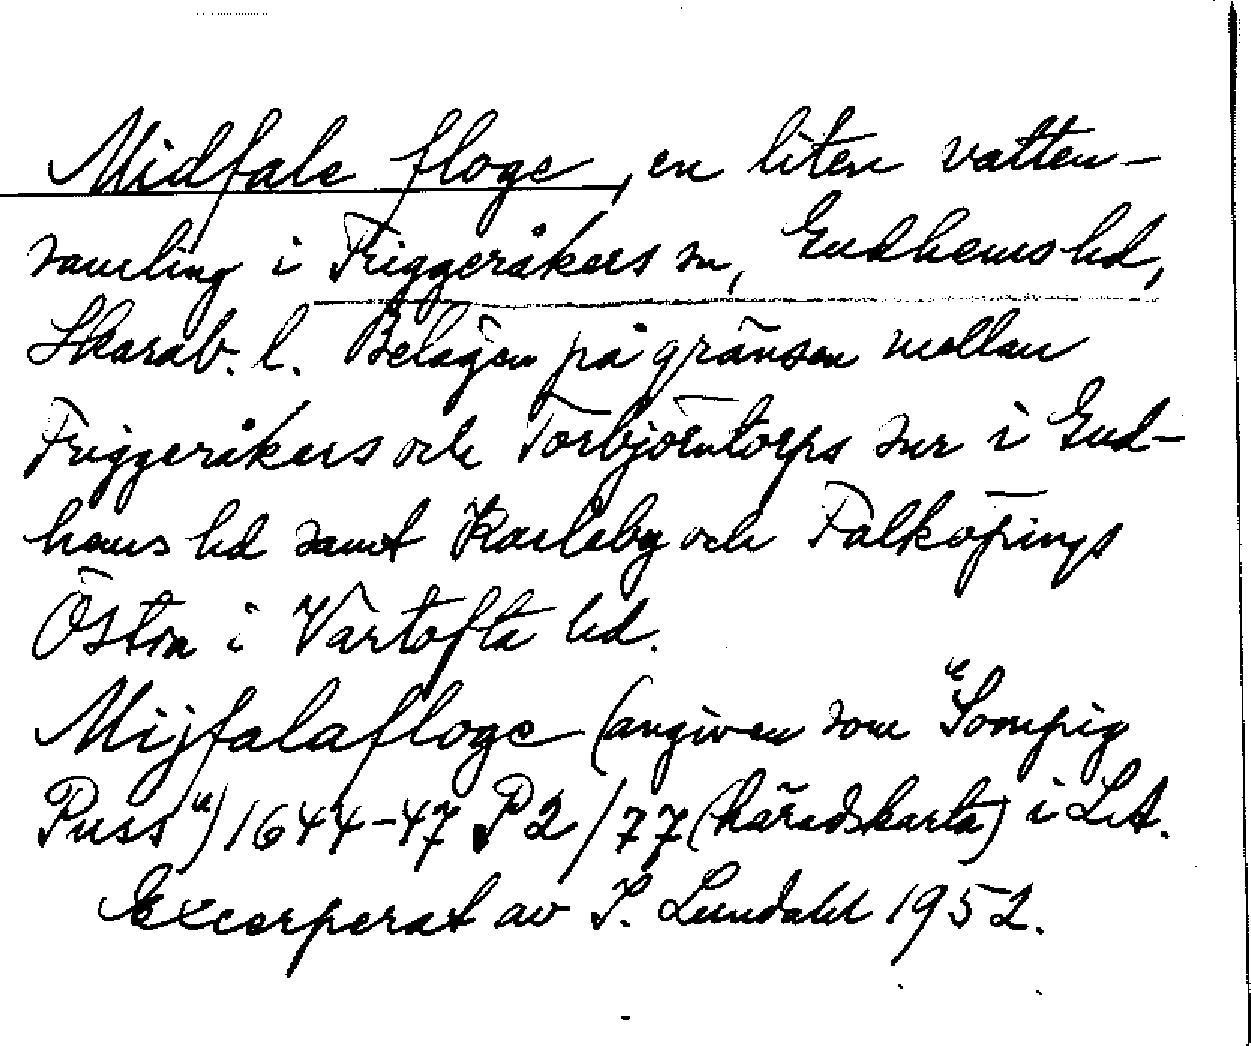 Midfale floge, en liten vatten-
samling i Friggeråkers sn, Gudhems hd,
Skarab. l. Belägen på gränsen mellan
Friggeråkers och Torbjörntorps snr i Gud-
hems hd samt Karleby och Falköpings
Östra i Vartofta hd.
Mijfalafloge (angiven som "Sompig
Puss") 1644-47 P2/77 (häradskarta) i LSA.
Excerperat av I. Lundahl 1952.